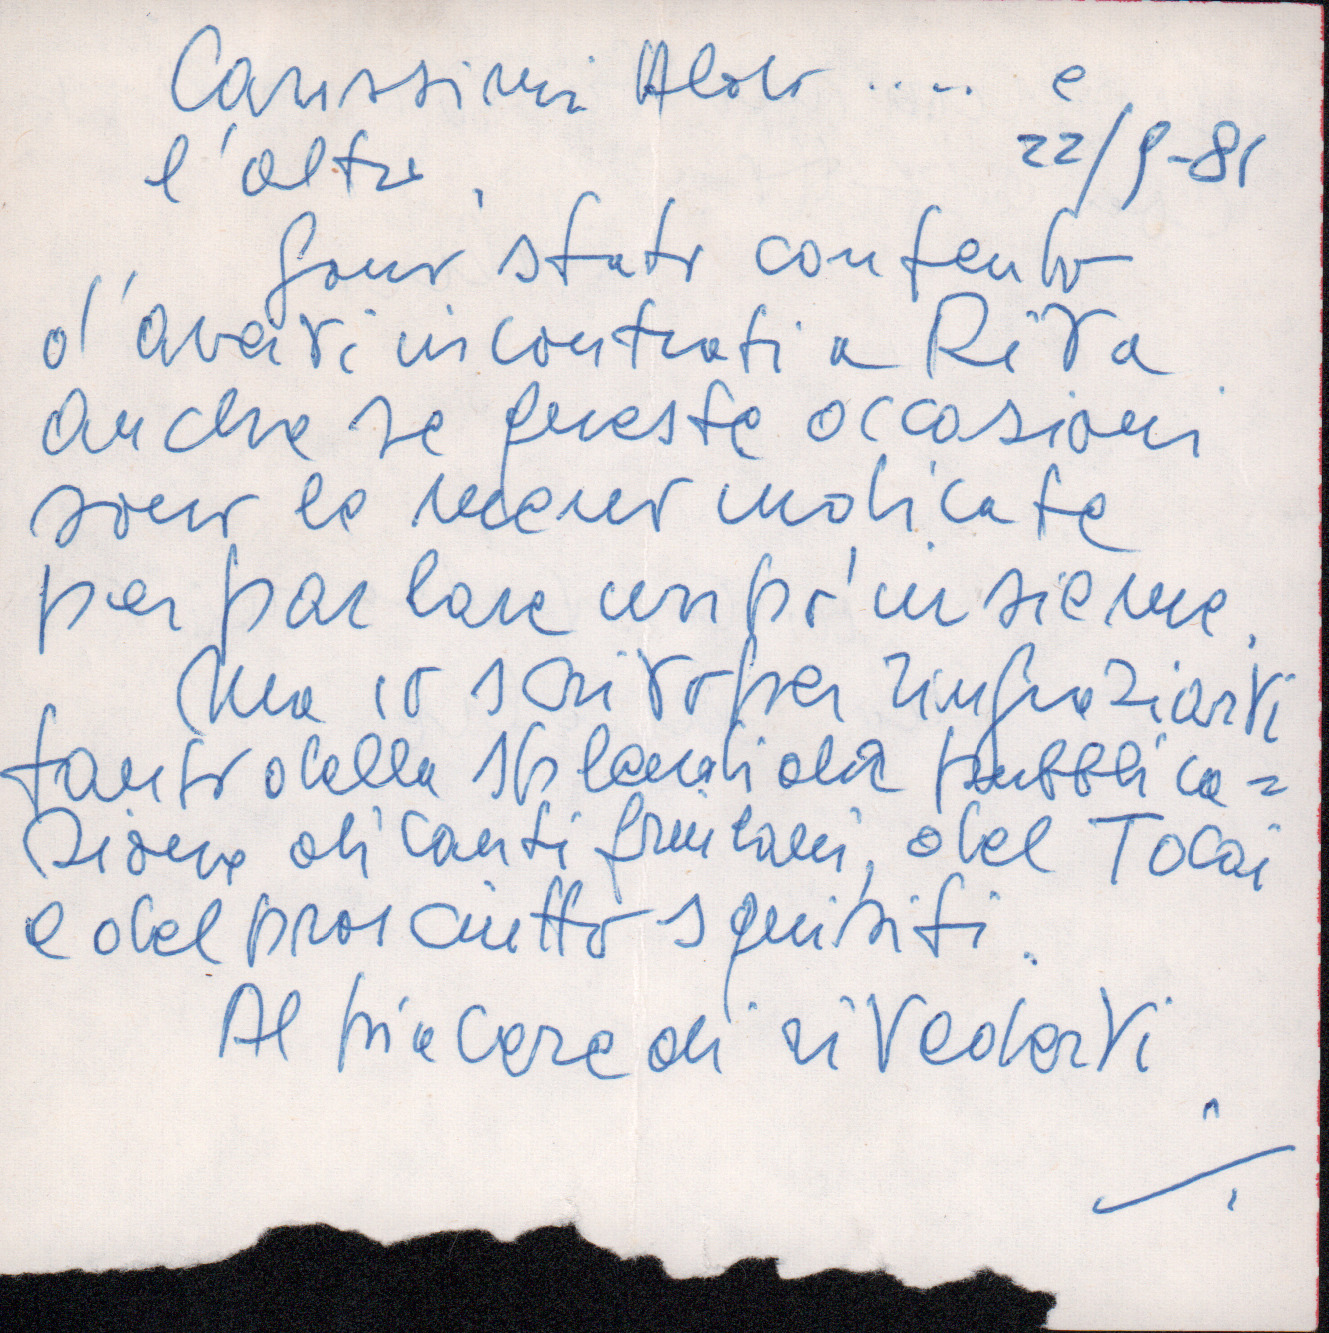 Carissimi Aldo .... e
l'altro,
22/9-81
Sono stato contento
d'avervi incontrati a Riva
anche se queste occasioni
sono le meno indicate
per parlare un pò insieme.
Ma io scrivo per ringraziarvi
tanto della splendida pubblica=
zione di canti friulani, del Tocai
e del prosciutto squisiti.
Al piacere di rivedervi